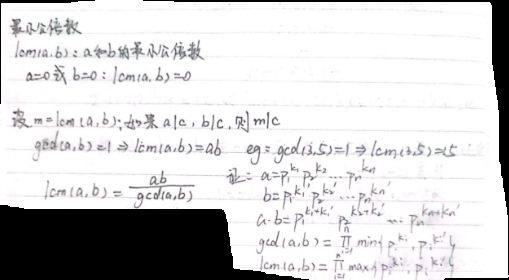 最小公倍数
lcm(a,b):a和b的最小公倍数
a=0或b=0:lcm(a,b)=0
设m=lcm(a,b);如果a|c,b|c,则m|c
gcd(a,b)=1⇒lcm(a,b)=ab eg:gcd(3,5)=1⇒lcm(3,5)=15
lcm(a,b)=ab/gcd(a,b)
证:a=p₁^k₁ p₂^k₂ … pₙ^kₙ
b=p₁^k₁' p₂^k₂' … pₙ^kₙ'
a·b=p₁^(k₁+k₁') p₂^(k₂+k₂') … pₙ^(kₙ+kₙ')
gcd(a,b)=∏ᵢ₌₁ⁿ min{pᵢ^kᵢ, pᵢ^kᵢ'}
lcm(a,b)=∏ᵢ₌₁ⁿ max{pᵢ^kᵢ, pᵢ^kᵢ'}